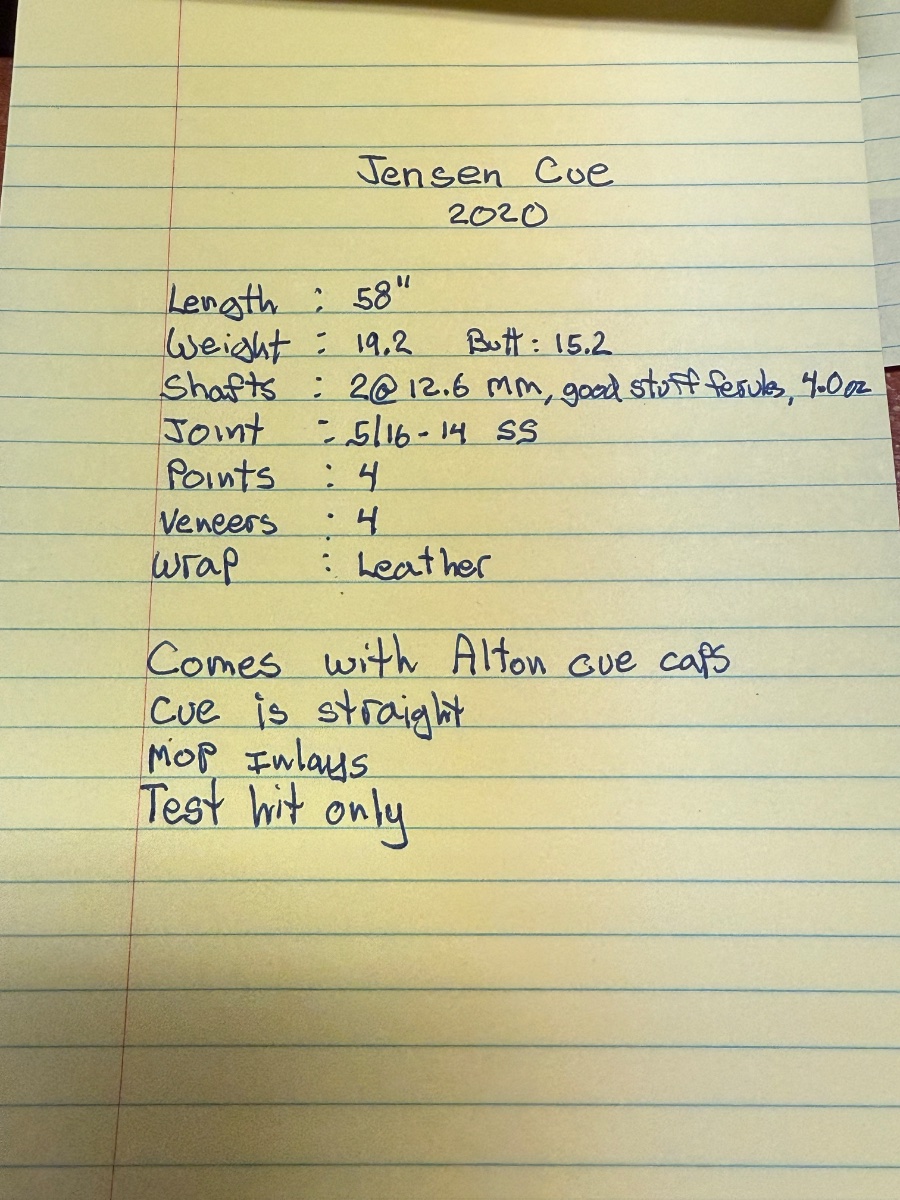 Jensen Cue
2020
Length : 58"
Weight : 19.2 Butt : 15.2
Shafts : 2@ 12.6 mm, good stuff ferules, 4.0 oz
Joint : 5/16-14 SS
Points : 4
Veneers : 4
Wrap : Leather
Comes with Alton cue caps
Cue is straight
MOP Inlays
Test hit only